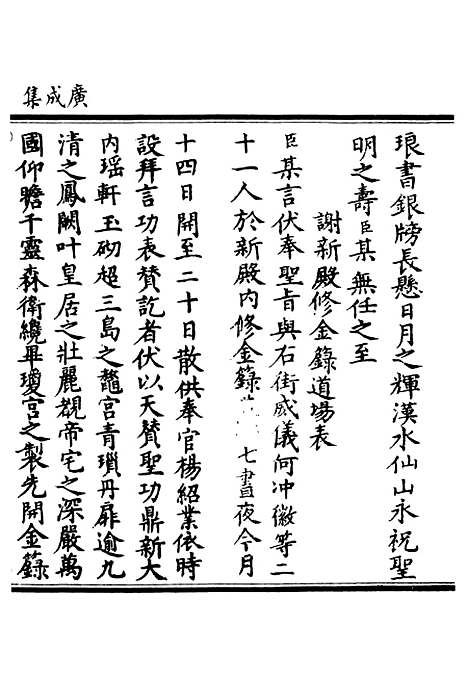 廣成集
琅書銀牓長懸日月之輝漢水仙山永祝聖
明之壽臣某無任之至
謝新殿修金籙道場表
臣某言伏奉聖旨與石街威儀何冲徽等二
十一人於新殿內修金籙 七晝夜今月
十四日開至二十日散供奉官楊紹業依時
設拜言功表贊訖者伏以天贊聖功鼎新大
內瑶軒玉砌超三島之鼇宮青瑣丹扉逾九
清之鳳闕叶皇居之壯麗覩帝宅之深嚴萬
國仰瞻千靈森衛纔畢瓊宮之製先開金籙